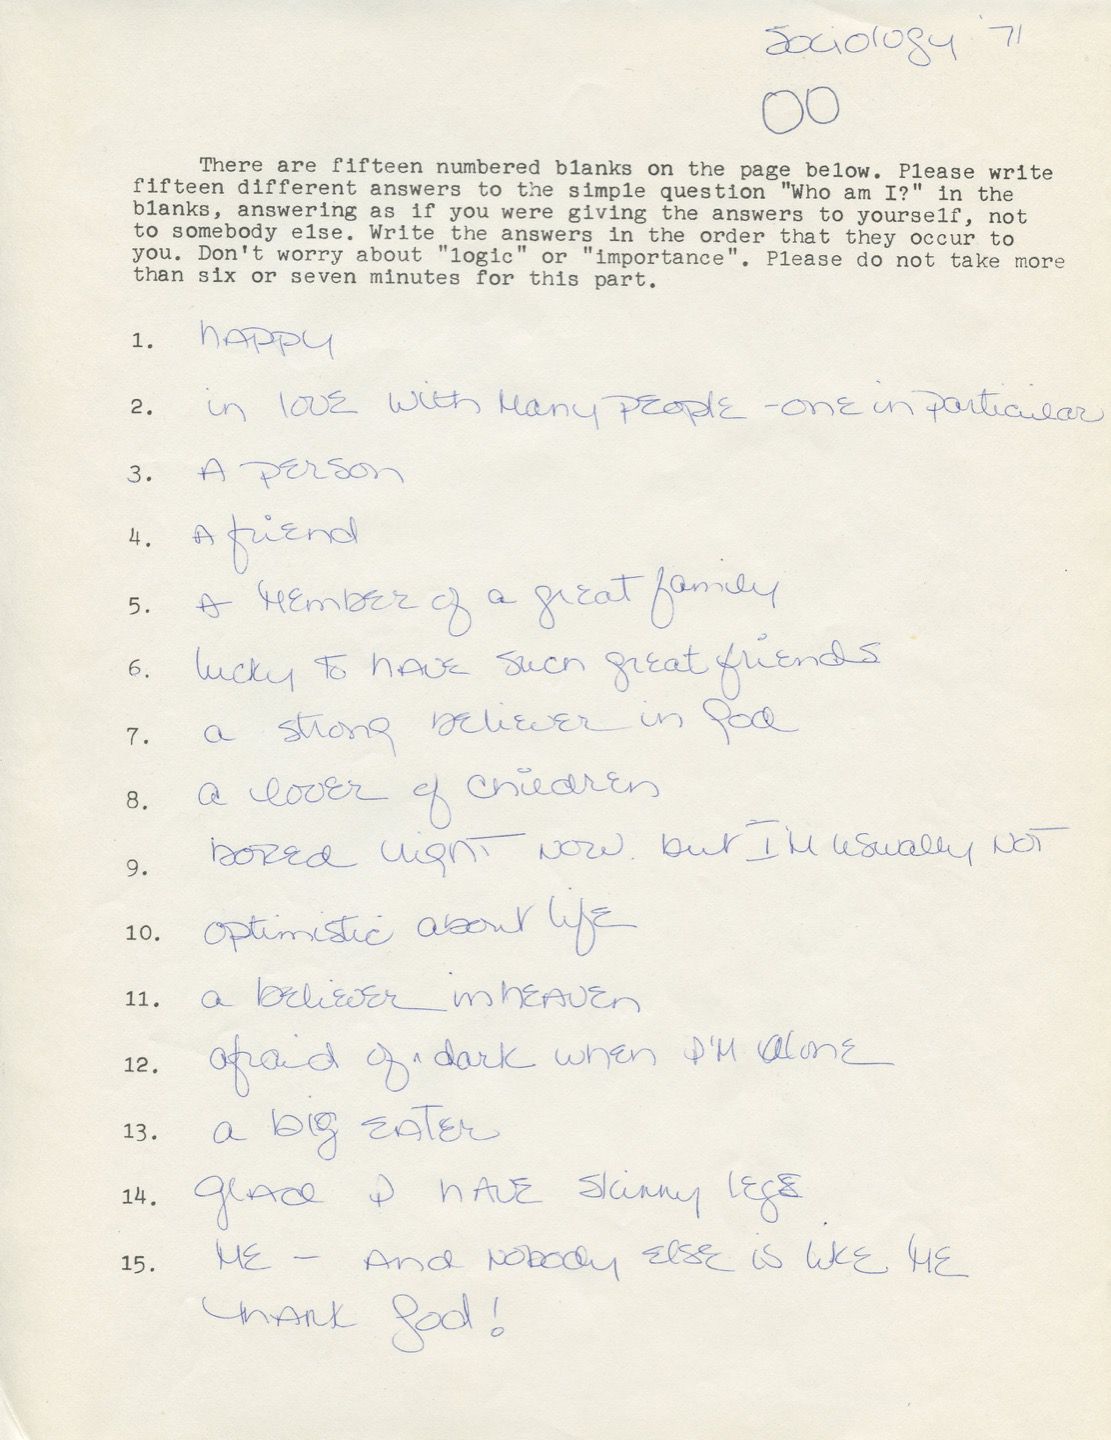 Sociology '71
00
There are fifteen numbered blanks on the page below. Please write
fifteen different answers to the simple question "Who am I?" in the
blanks, answering as if you were giving the answers to yourself, not
to somebody else. Write the answers in the order that they occur to
you. Don't worry about "logic" or "importance". Please do not take more
than six or seven minutes for this part.
1. hAPPY
2. in love with Many people - one in particular
3. A person
4. A friend
5. A Member of a great family
6. lucky to have such great friends
7. a strong believer in God
8. a lover of children
9. bored right now. but I'M usually NOT
10. optimistic about life
11. a believer in heaven
12. afraid of dark when I'M alone
13. a big eater
14. glad I have skinny legs
15. ME - And Nobody else is like ME
thank God!